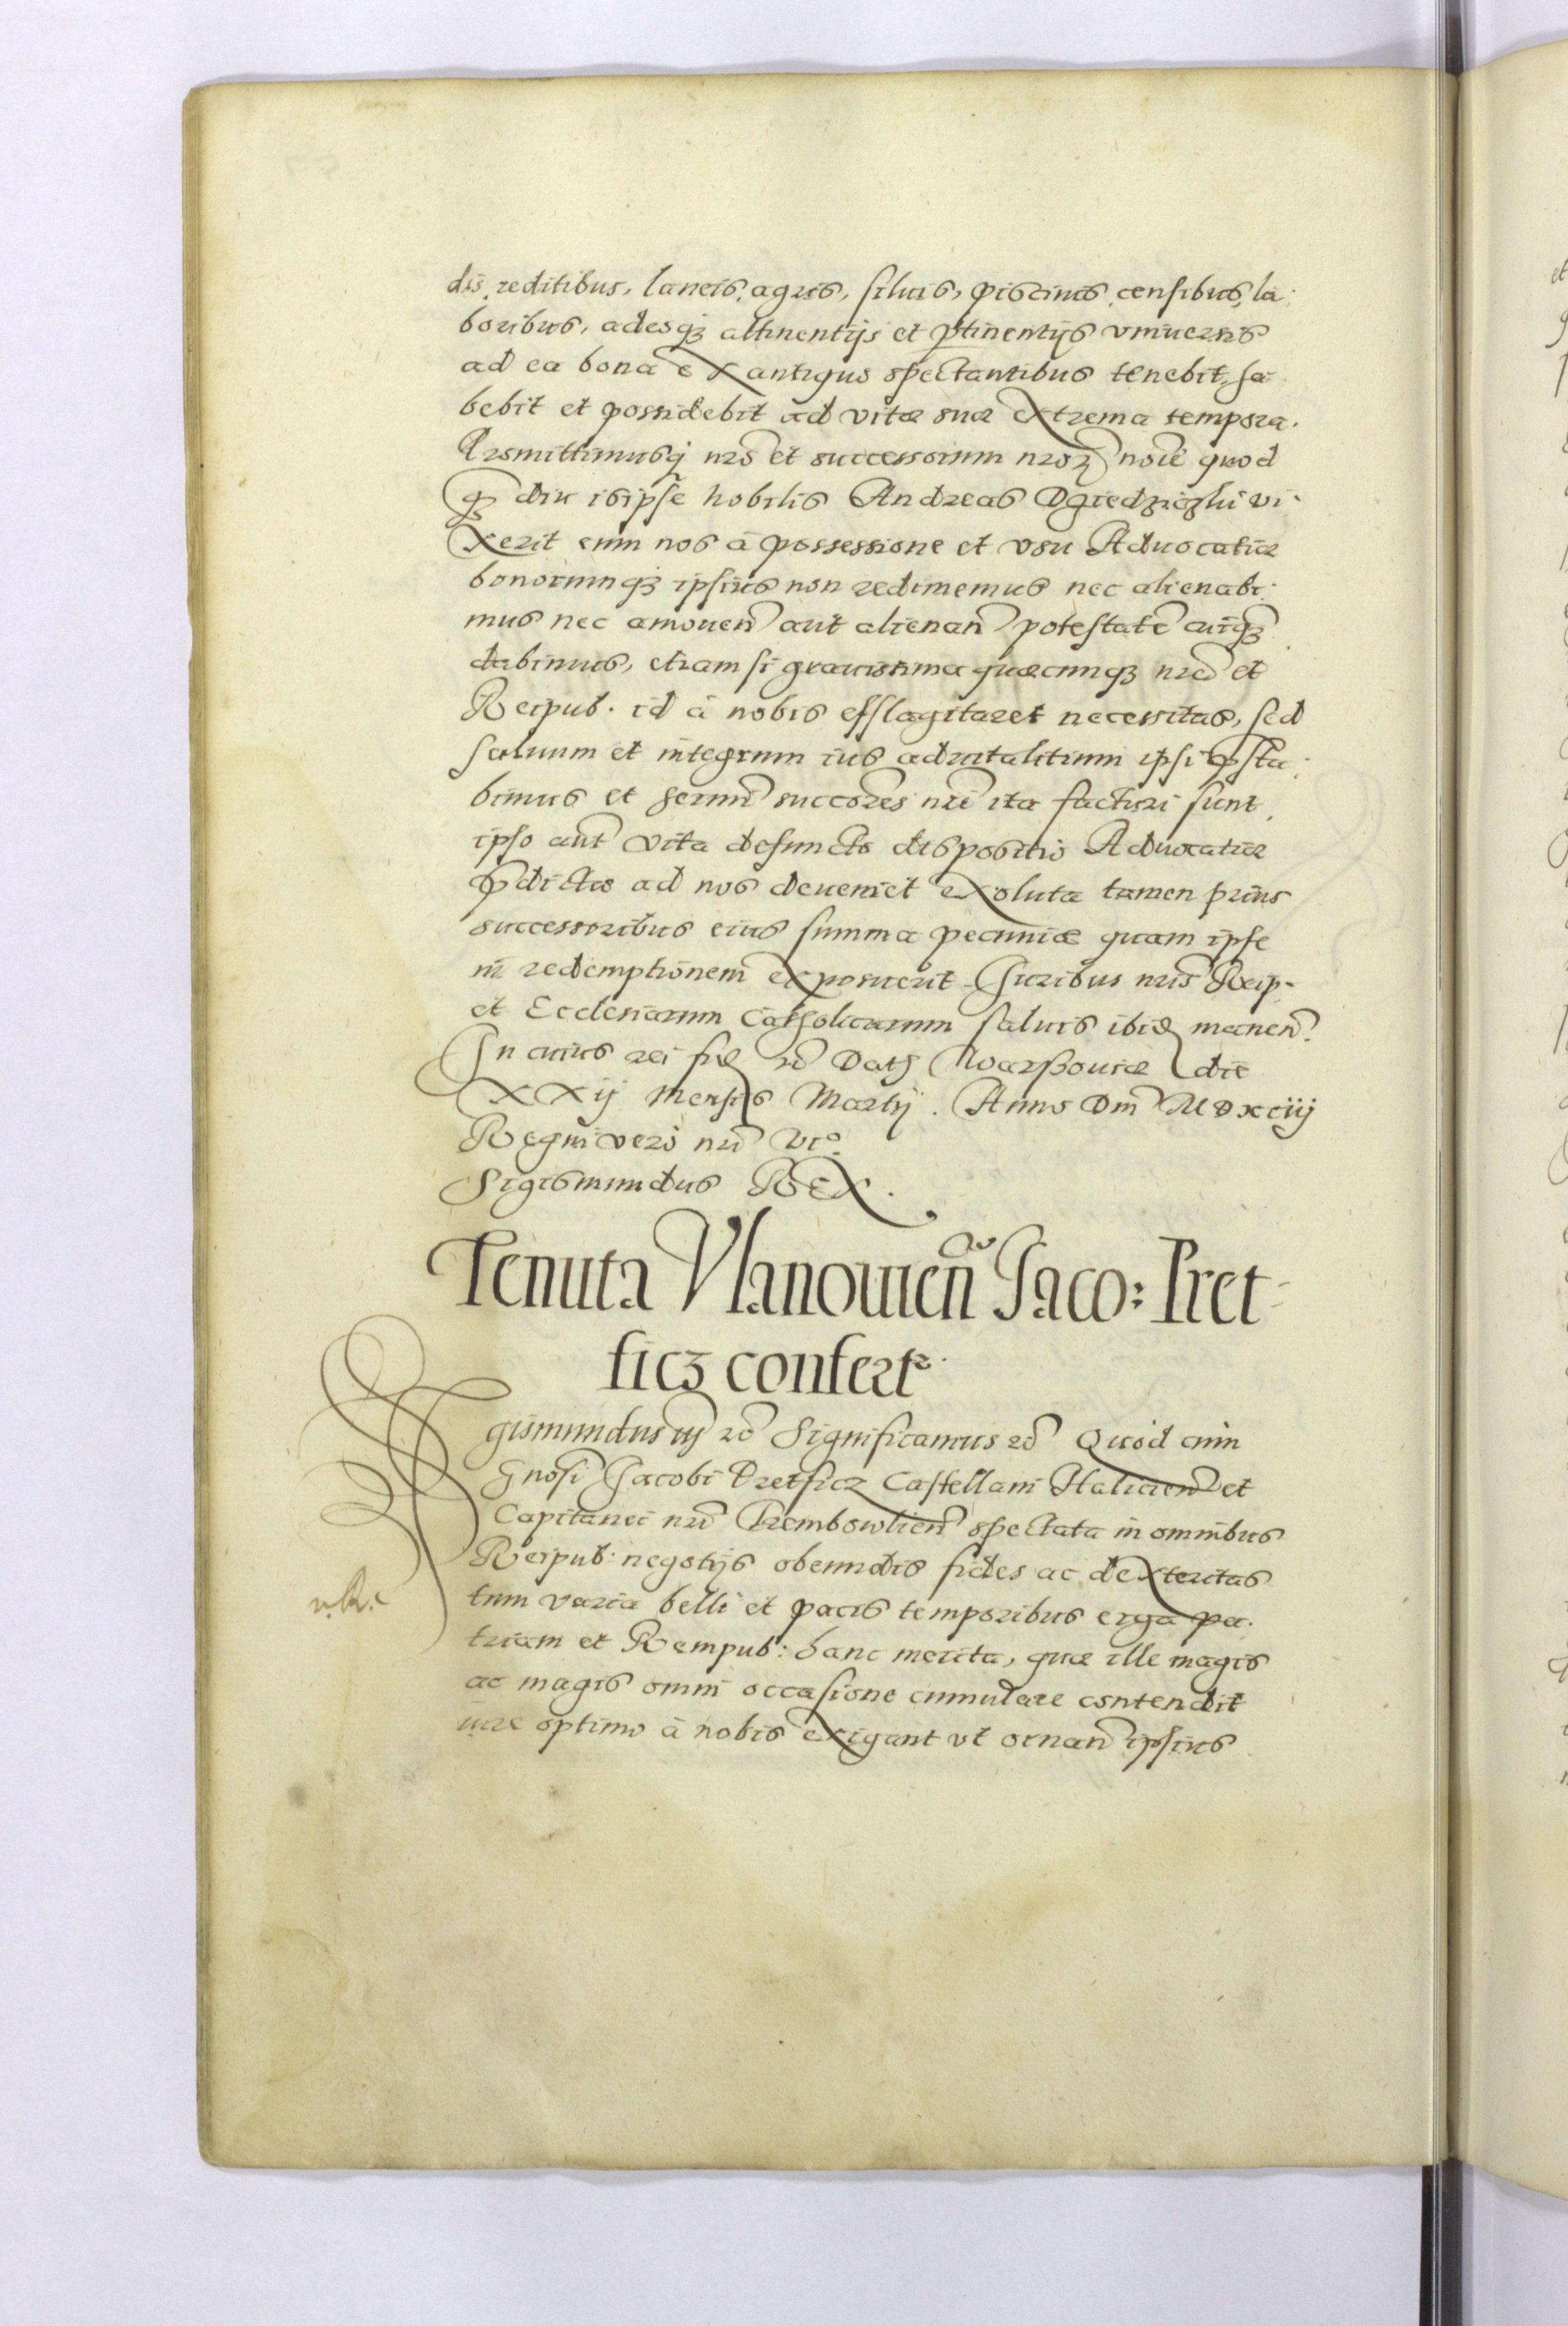 dis, reditibus, laneis, agris, siluis, piscinis, censibus, la:
boribus, adesq3 attinentijs et ptinentijs vniuersis
ad ea bona ex antiquo spectantibus tenebit, ha
bebit et possidebit ad vitæ suæ extrema tempora.
Promittimusq3 nro et successorum nror̄ noīe quod
q3 diu is ipse nobilis Andreas vi:
xerit eum nos à possessione et vsu Aduocatiæ
bonorumq3 ipsius non redimemus nec alienabi:
mus nec amouen̄ aut alienan̄ potestatē cuiq3
dabimus, etiam si grauissima quæcunq3 nrā et
Reipub. id à nobis efflagitaret necessitas, sed
saluum et integrum ius aduitalitium ipsi p̄sta:
bimus et sermī succōres nrī ita facturi sunt,
ipso aut̄ vita defuncto dispositio Aduocatiæ
p̄dictæ ad nos deueniet exoluta tamen prius
successoribus eius summa pecuniæ quam ipse
in redemptionem exposuerit. Juribus nris̄ Reip.
et Ecclesiarum Catholicarum saluis ibid manen̄.
In cuius rei fid rc̄ Dat Warssouiæ die
XXij Mensis Martij. Anno Dnī MDxciij
Regni vero nrī vi°.
Sigismundus REX.
Tenuta Vlanouien̄ Jaco: Pret-
ficz confertr.
Sigismundus iij rc̄ Significamus rc̄ Quod cum
Gnosi Jacobi Pretficz Castellani Halicien̄ et
Capitanei nrī Trembowlien̄ spectata in omnibus
Reipub: negotijs obeundis fides ac dexteritas
tum varia belli et pacis temporibus erga pa:
triam et Rempub: hanc merita, quæ ille magis
ac magis omni occasione cumulare contendit
iure optimo à nobis exigant vt ornan̄ ipsius